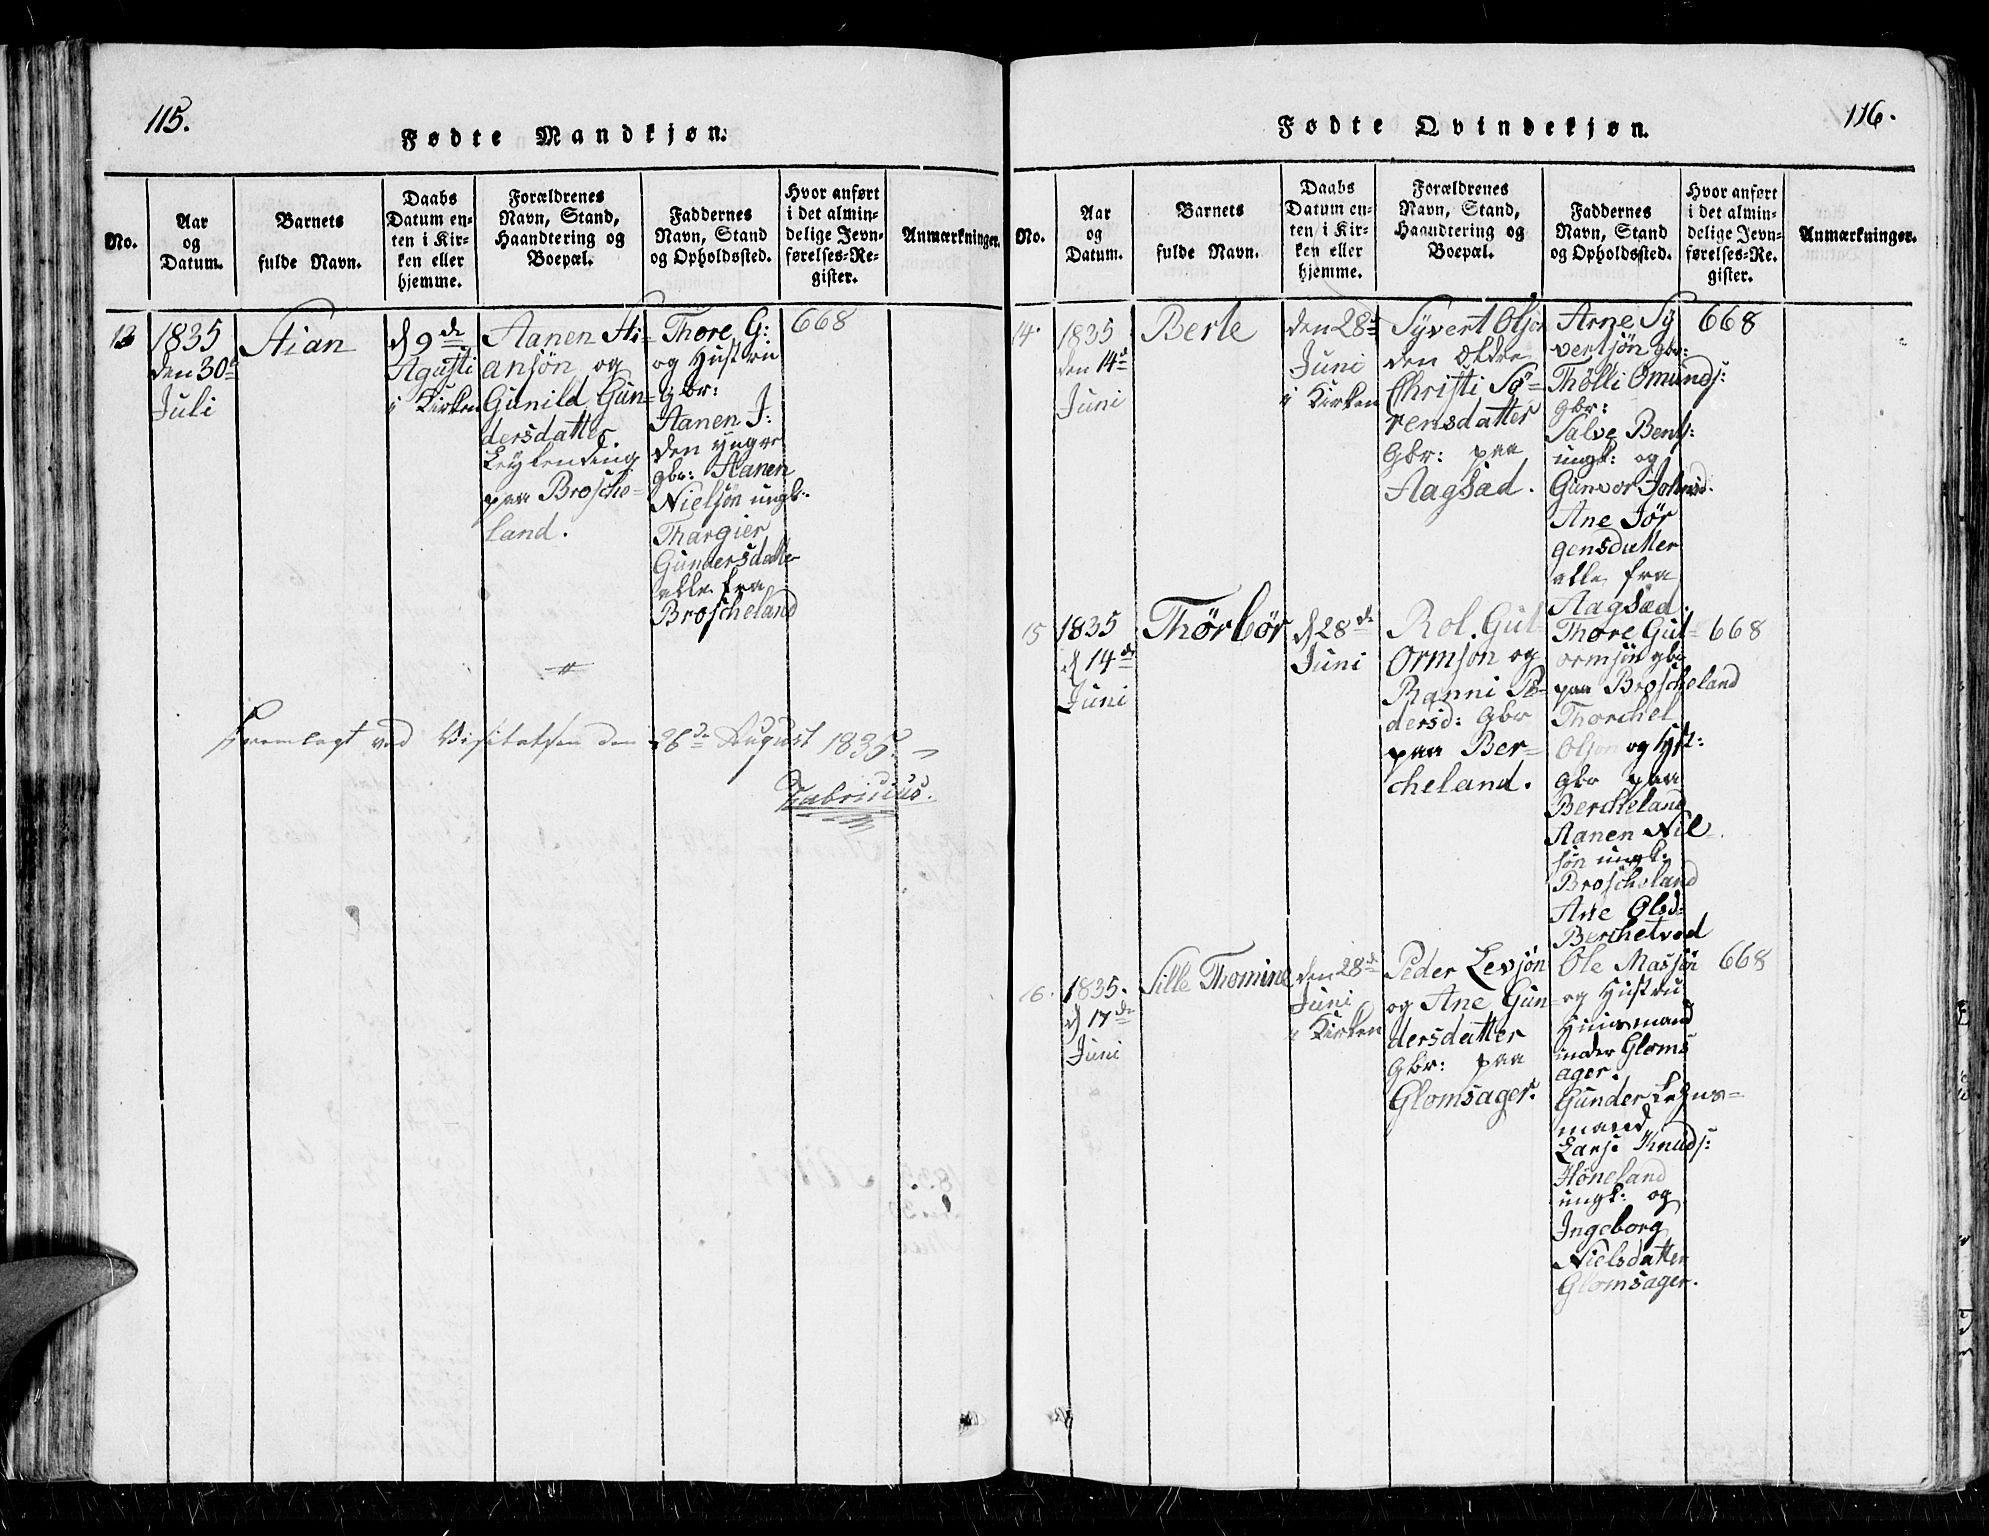 115.
Fødte Mandkjøn.
No.
Aar
og
Datum.
Barnets
fulde Navn.
Daabs
Datum en-
ten i Kir-
ken eller
hjemme.
Forældrenes
Navn, Stand,
Haandtering og
Boepæl.
Faddernes
Navn, Stand
og Opholdssted.
Hvor anført
i det almin-
delige Jevn-
førelses-Re-
gister.
Anmærkninger.
13
1835
den 30te
Juli
Stian
d 9de
Agusti
i Kirken
Aanen Sti-
ansøn og
Gunild Gun-
dersdatter
Leylending
paa Brosche-
land.
Thore G:
og Hustru
gbr:
Aanen J:
den yngre
gbr: Aanen
Nielsøn ungk:
Thargier
Gundersdatter
alle fra
Broscheland
668
Fremlagt ved Visitatsen den 26de August 1835.
Fabricius.
116.
Fødte Qvindekjøn.
No.
Aar
og
Datum.
Barnets
fulde Navn.
Daabs
Datum en-
ten i Kir-
ken eller
hjemme.
Forældrenes
Navn, Stand,
Haandtering og
Boepæl.
Faddernes
Navn, Stand
og Opholdssted.
Hvor anført
i det almin-
delige Jevn-
førelses-Re-
gister.
Anmærkninger.
14.
1835
den 14de
Juni
Berte
den 28de
Juni
i Kirken
Syvert Olsøn
den Ældre
Christi Sø-
rensdatter
Gbr: paa
Aagsæd.
Arne Sy
vertsøn gbr:
Thølli Omunds:
gbr:
Salve Bents:
ungk: og
Gunvor Johnsd.
Ane Jør
gensdatter
alle fra
Aagsæd.
668
15
1835
d 14de
Juni
Thørbør
d 28de
Juni
Rol. Gut-
Ormsøn og
Ranni Pe-
dersd: Gbr
paa Ber-
cheland.
Thore Gut-
ormsøn gbr
paa Broscheland
Thorchel
Olsøn og Hst:
Gbr paa
Bercheland
Aanen Nil-
søn ungk:
Broscheland
Ane Olsd:
Berchetved
668
16.
1835.
d 17de
Juni
Sille Thomine
den 28de
Juni
i Kirken
Peder Levsøn
og Ane Gun-
dersdatter
Gbr: paa
Glomsager.
Ole Massøn
og Hustru
Huusmand
under Gloms
ager.
Gunder Lehns-
mand
Larse Knuds:
Høneland
ungk: og
Ingeborg
Nielsdatter
Glomsager.
668